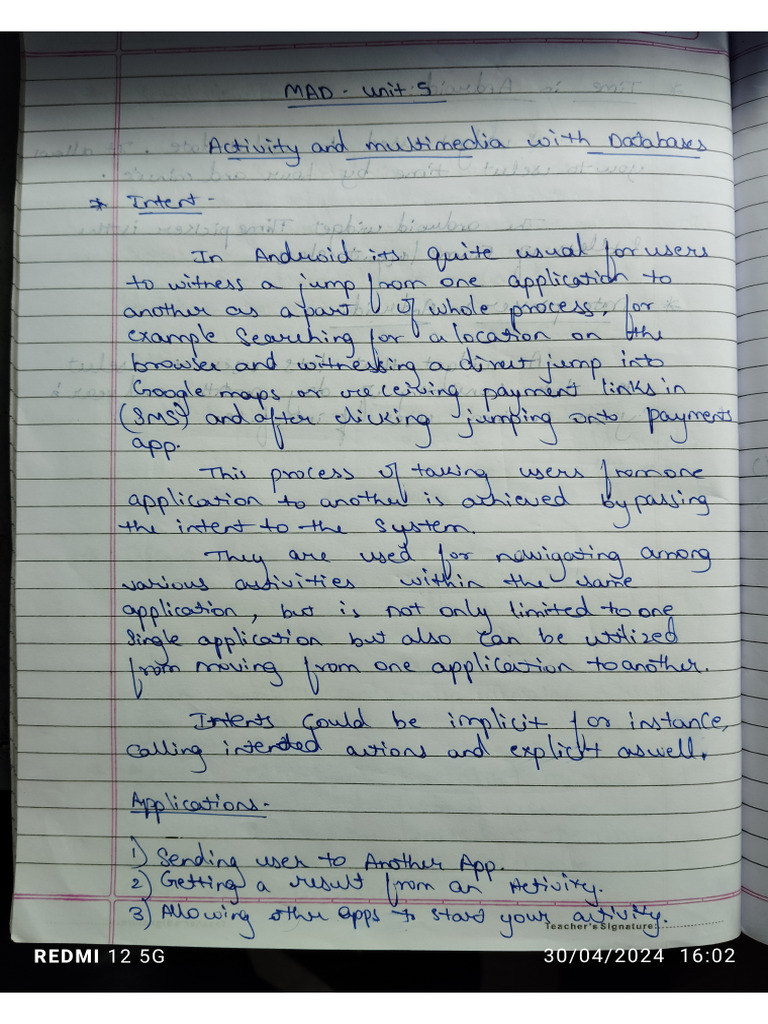 MAD - Unit 5
Activity and multimedia with Databases
* Intent -
In Android its quite usual for users
to witness a jump from one application to
another as a part of whole process, for
example Searching for a location on the
browser and witnessing a direct jump into
Google maps or receiving payment links in
(SMS) and after clicking jumping onto payments
app.
This process of taking users from one
application to another is achieved by passing
the intent to the System.
They are used for navigating among
various activities within the same
application, but is not only limited to one
single application but also can be utilized
from moving from one application to another.
Intents could be implicit for instance,
calling intended actions and explicit aswell.
Applications -
1) Sending user to Another App.
2) Getting a result from an Activity.
3) Allowing other apps to start your activity.
Teacher's Signature:
REDMI 12 5G
30/04/2024 16:02